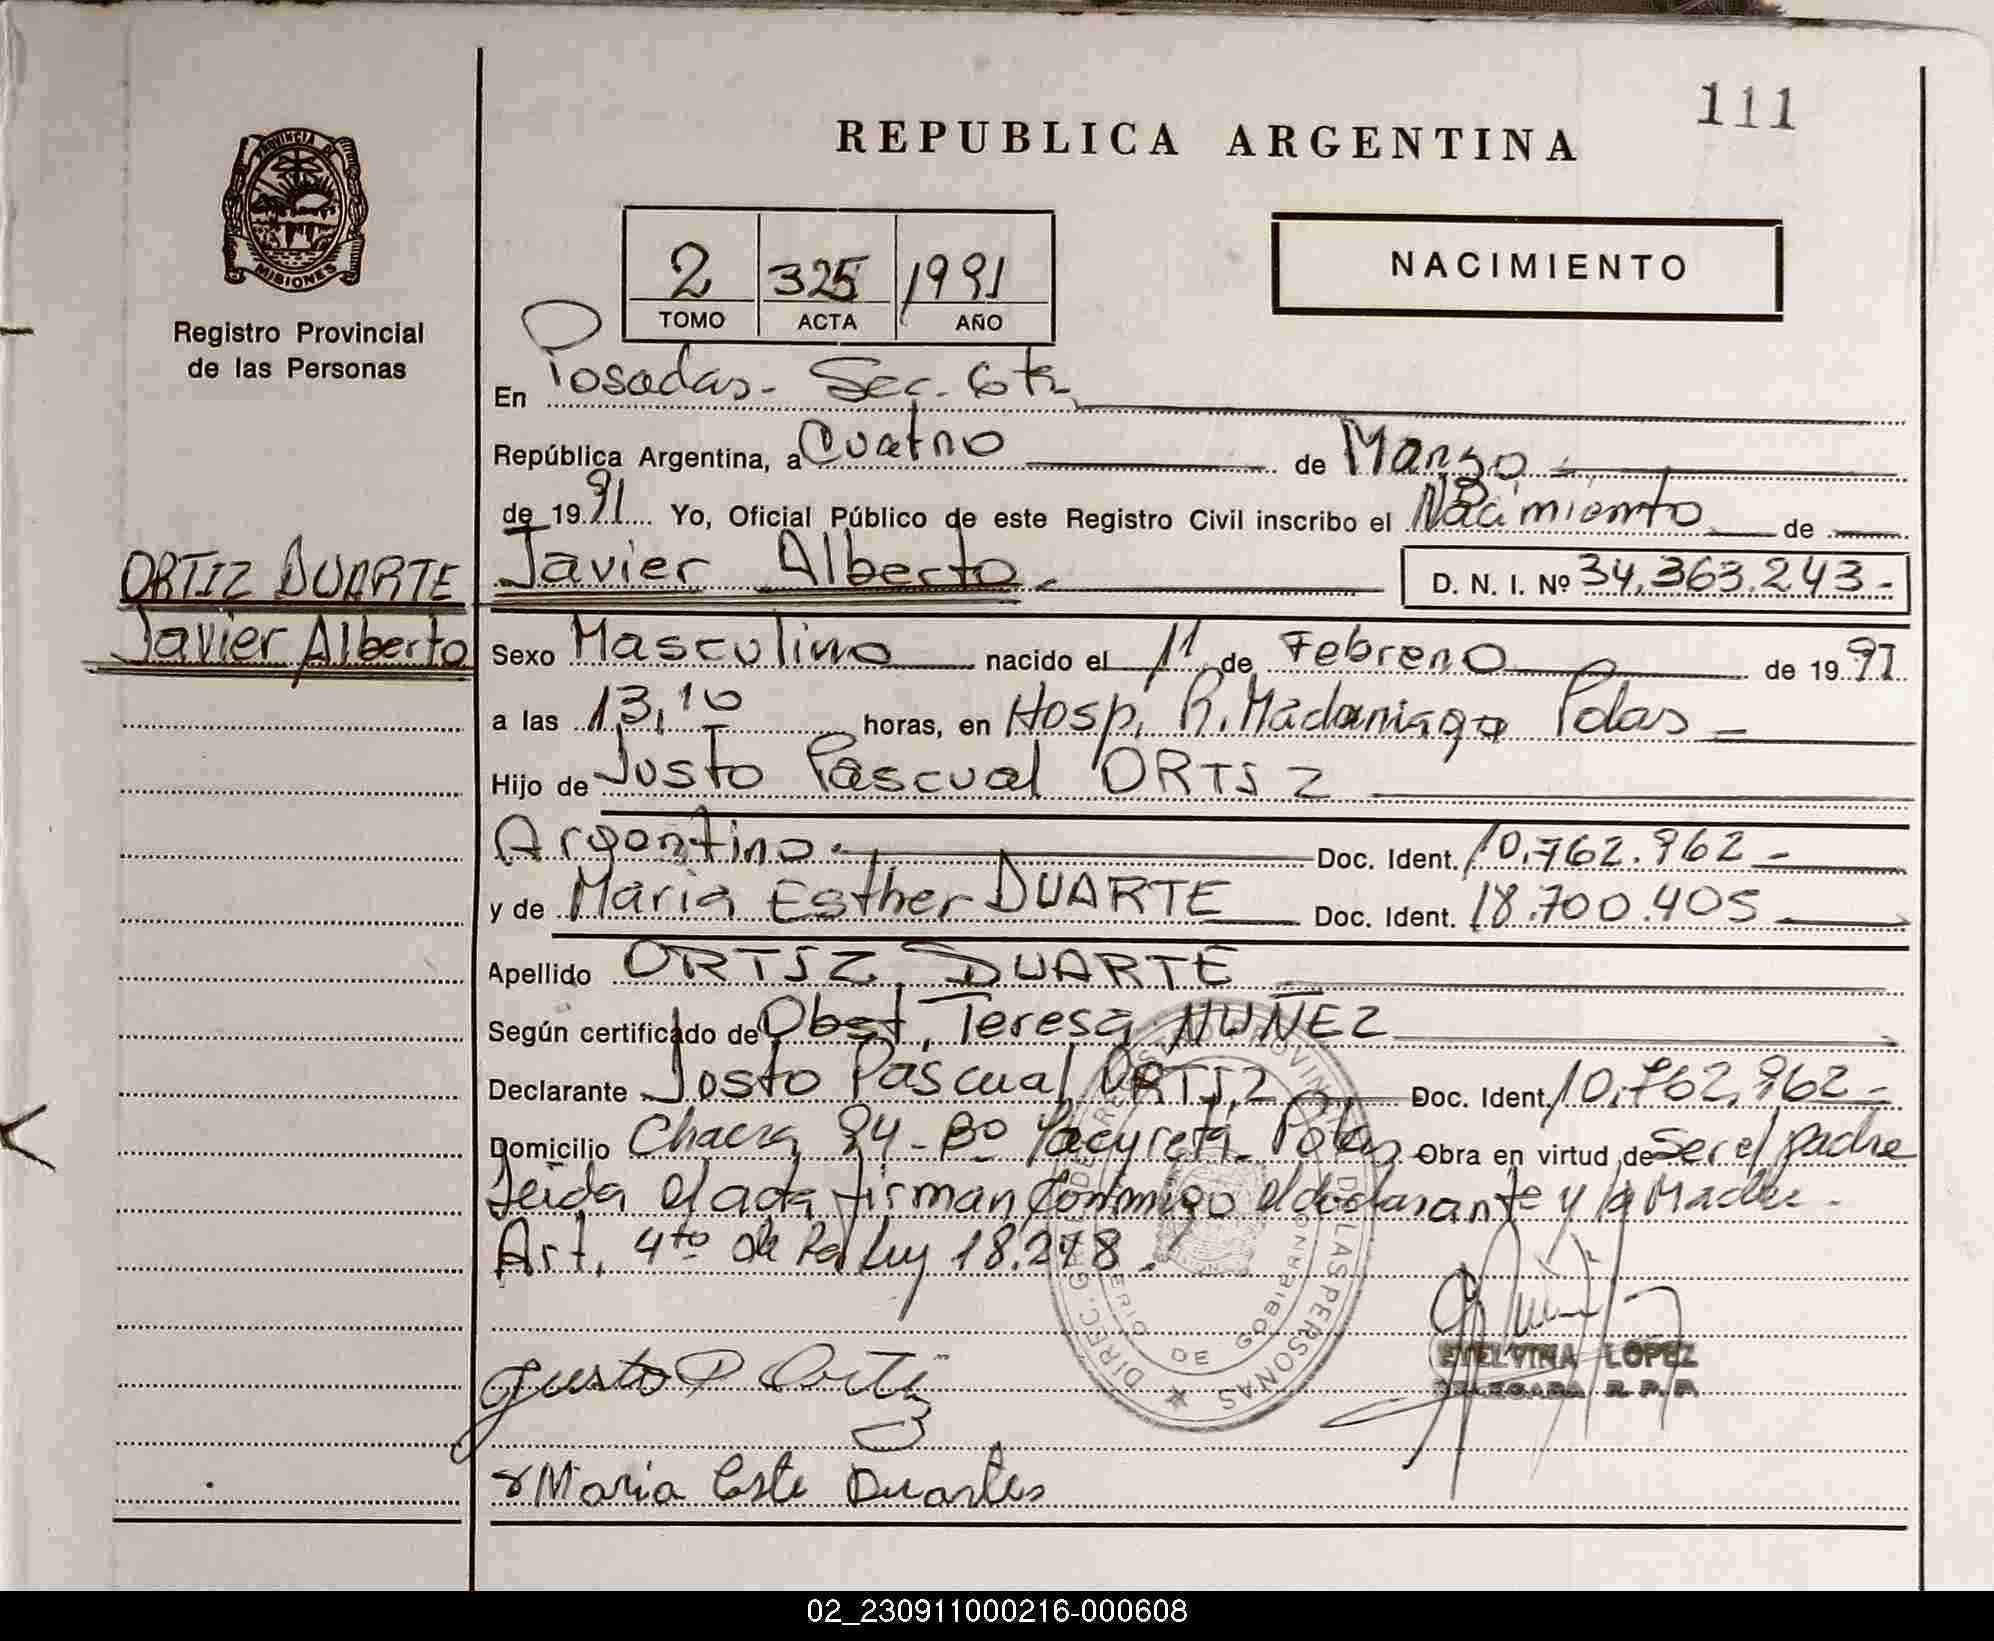 111
REPUBLICA ARGENTINA
PROVINCIA DE
MISIONES
Registro Provincial
de las Personas
2 325 1991
TOMO ACTA AÑO
NACIMIENTO
En Posadas - Sec. 6ta
República Argentina, a Cuatro de Marzo
de 1991 Yo, Oficial Público de este Registro Civil inscribo el Nacimiento de
ORTIZ DUARTE
Javier Alberto
Javier Alberto D. N. I. Nº 34,363.243-
Sexo Masculino nacido el 11 de Febrero de 1991
a las 13,10 horas, en Hosp. R. Madariaga Pdas
Hijo de Justo Pascual ORTIZ
Argentino. Doc. Ident. 10.762.962-
y de Maria Esther DUARTE Doc. Ident. 18.700.405
Apellido ORTIZ DUARTE
Según certificado de Obst, Teresa NUÑEZ
Declarante Justo Pascual ORTIZ Doc. Ident. 10.762.962-
Domicilio Chacra 94 - Bº Yacyretá - Pdas. Obra en virtud de Ser el padre
Leida el acta firman conmigo el declarante y la Madre.
Art. 4to de la Ley 18.248.
DIREC. GRAL. DE REGISTRO PROVINCIAL DE LAS PERSONAS
DE GOBIERNO
Justo P Ortiz
ETELVINA LOPEZ
DELEGADA R. P. P.
Maria Este Duartes
02_230911000216-000608